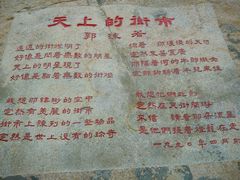 天上的街市
郭沫若
远远的街灯明了
好像是闪着無數的明星
天上的明星现了
好像是点着無數的街灯
我想那缥缈的空中
定然有美丽的街市
街市上陈列的一些物品
定然是世上没有的珍奇
你看 那浅浅的天河
定然是不甚宽广
那隔着河的牛郎织女
定能够骑着牛儿来往
我想他们此刻
定然在天街闲游
不信 请看那朵流星
是他们提着灯笼在走
一九九〇年四月